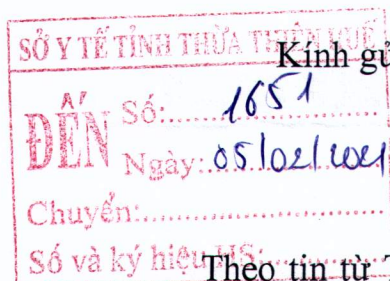 SỞ Y TẾ TỈNH THỪA THIÊN HUẾ
Kính gử
ĐẾN
Số:..........1651
Ngày: 05/02/2021
Chuyển:
Số và ký hiệu HS:
Theo tin từ T